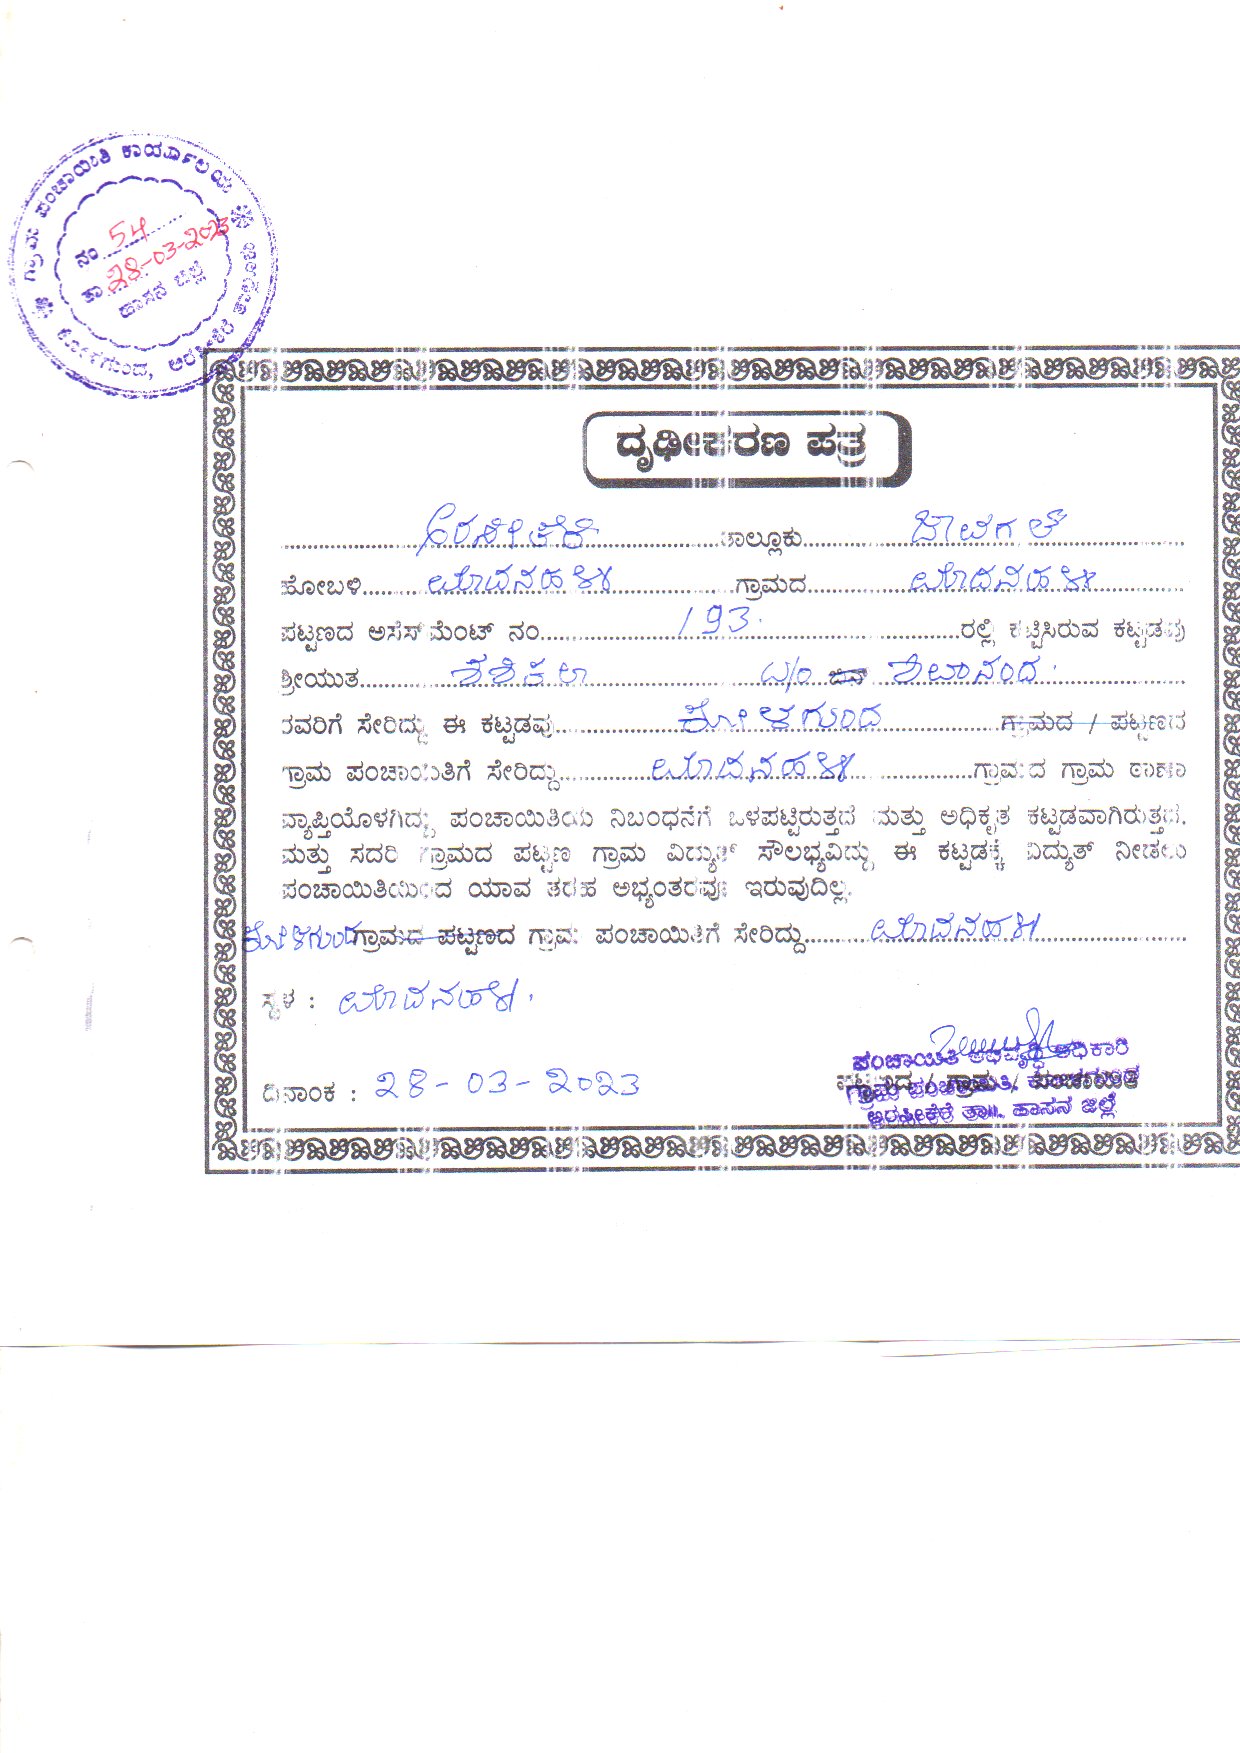 ಗ್ರಾಮ ಪಂಚಾಯಿತಿ ಕಾರ್ಯಾಲಯ
ಕೋಳಗುಂದ, ಅರಸೀಕೆರೆ ತಾಲ್ಲೂಕು
ನಂ 54
ತಾ 28-03-2023
ಹಾಸನ ಜಿಲ್ಲೆ
ದೃಢೀಕರಣ ಪತ್ರ
ಅರಸೀಕೆರೆ ತಾಲ್ಲೂಕು ಜಾವಗಲ್
ಹೋಬಳಿ ಮಾದನಹಳ್ಳಿ ಗ್ರಾಮದ ಮಾದನಹಳ್ಳಿ
ಪಟ್ಟಣದ ಅಸೆಸ್‌ಮೆಂಟ್ ನಂ 193. ರಲ್ಲಿ ಕಟ್ಟಿಸಿರುವ ಕಟ್ಟಡವು
ಶ್ರೀಯುತ ಶಶಿಕಲಾ W/o ಬಿನ್ ಶಿವಾನಂದ.
ರವರಿಗೆ ಸೇರಿದ್ದು ಈ ಕಟ್ಟಡವು ಕೋಳಗುಂದ ಗ್ರಾಮದ / ಪಟ್ಟಣದ
ಗ್ರಾಮ ಪಂಚಾಯಿತಿಗೆ ಸೇರಿದ್ದು ಮಾದನಹಳ್ಳಿ ಗ್ರಾಮದ ಗ್ರಾಮ ಠಾಣಾ
ವ್ಯಾಪ್ತಿಯೊಳಗಿದ್ದು ಪಂಚಾಯಿತಿಯ ನಿಬಂಧನೆಗೆ ಒಳಪಟ್ಟಿರುತ್ತದೆ ಮತ್ತು ಅಧಿಕೃತ ಕಟ್ಟಡವಾಗಿರುತ್ತದೆ.
ಮತ್ತು ಸದರಿ ಗ್ರಾಮದ ಪಟ್ಟಣ ಗ್ರಾಮ ವಿದ್ಯುತ್ ಸೌಲಭ್ಯವಿದ್ದು ಈ ಕಟ್ಟಡಕ್ಕೆ ವಿದ್ಯುತ್ ನೀಡಲು
ಪಂಚಾಯಿತಿಯಿಂದ ಯಾವ ತರಹ ಅಭ್ಯಂತರವೂ ಇರುವುದಿಲ್ಲ.
ಕೋಳಗುಂದ ಗ್ರಾಮದ ಪಟ್ಟಣದ ಗ್ರಾಮ ಪಂಚಾಯಿತಿಗೆ ಸೇರಿದ್ದು ಮಾದನಹಳ್ಳಿ
ಸ್ಥಳ : ಮಾದನಹಳ್ಳಿ.
ಪಂಚಾಯಿತಿ ಅಭಿವೃದ್ಧಿ ಅಧಿಕಾರಿ
ಗ್ರಾಮ ಪಂಚಾಯಿತಿ, ಕೋಳಗುಂದ
ಅರಸೀಕೆರೆ ತಾ||. ಹಾಸನ ಜಿಲ್ಲೆ
ದಿನಾಂಕ : 28-03-2023